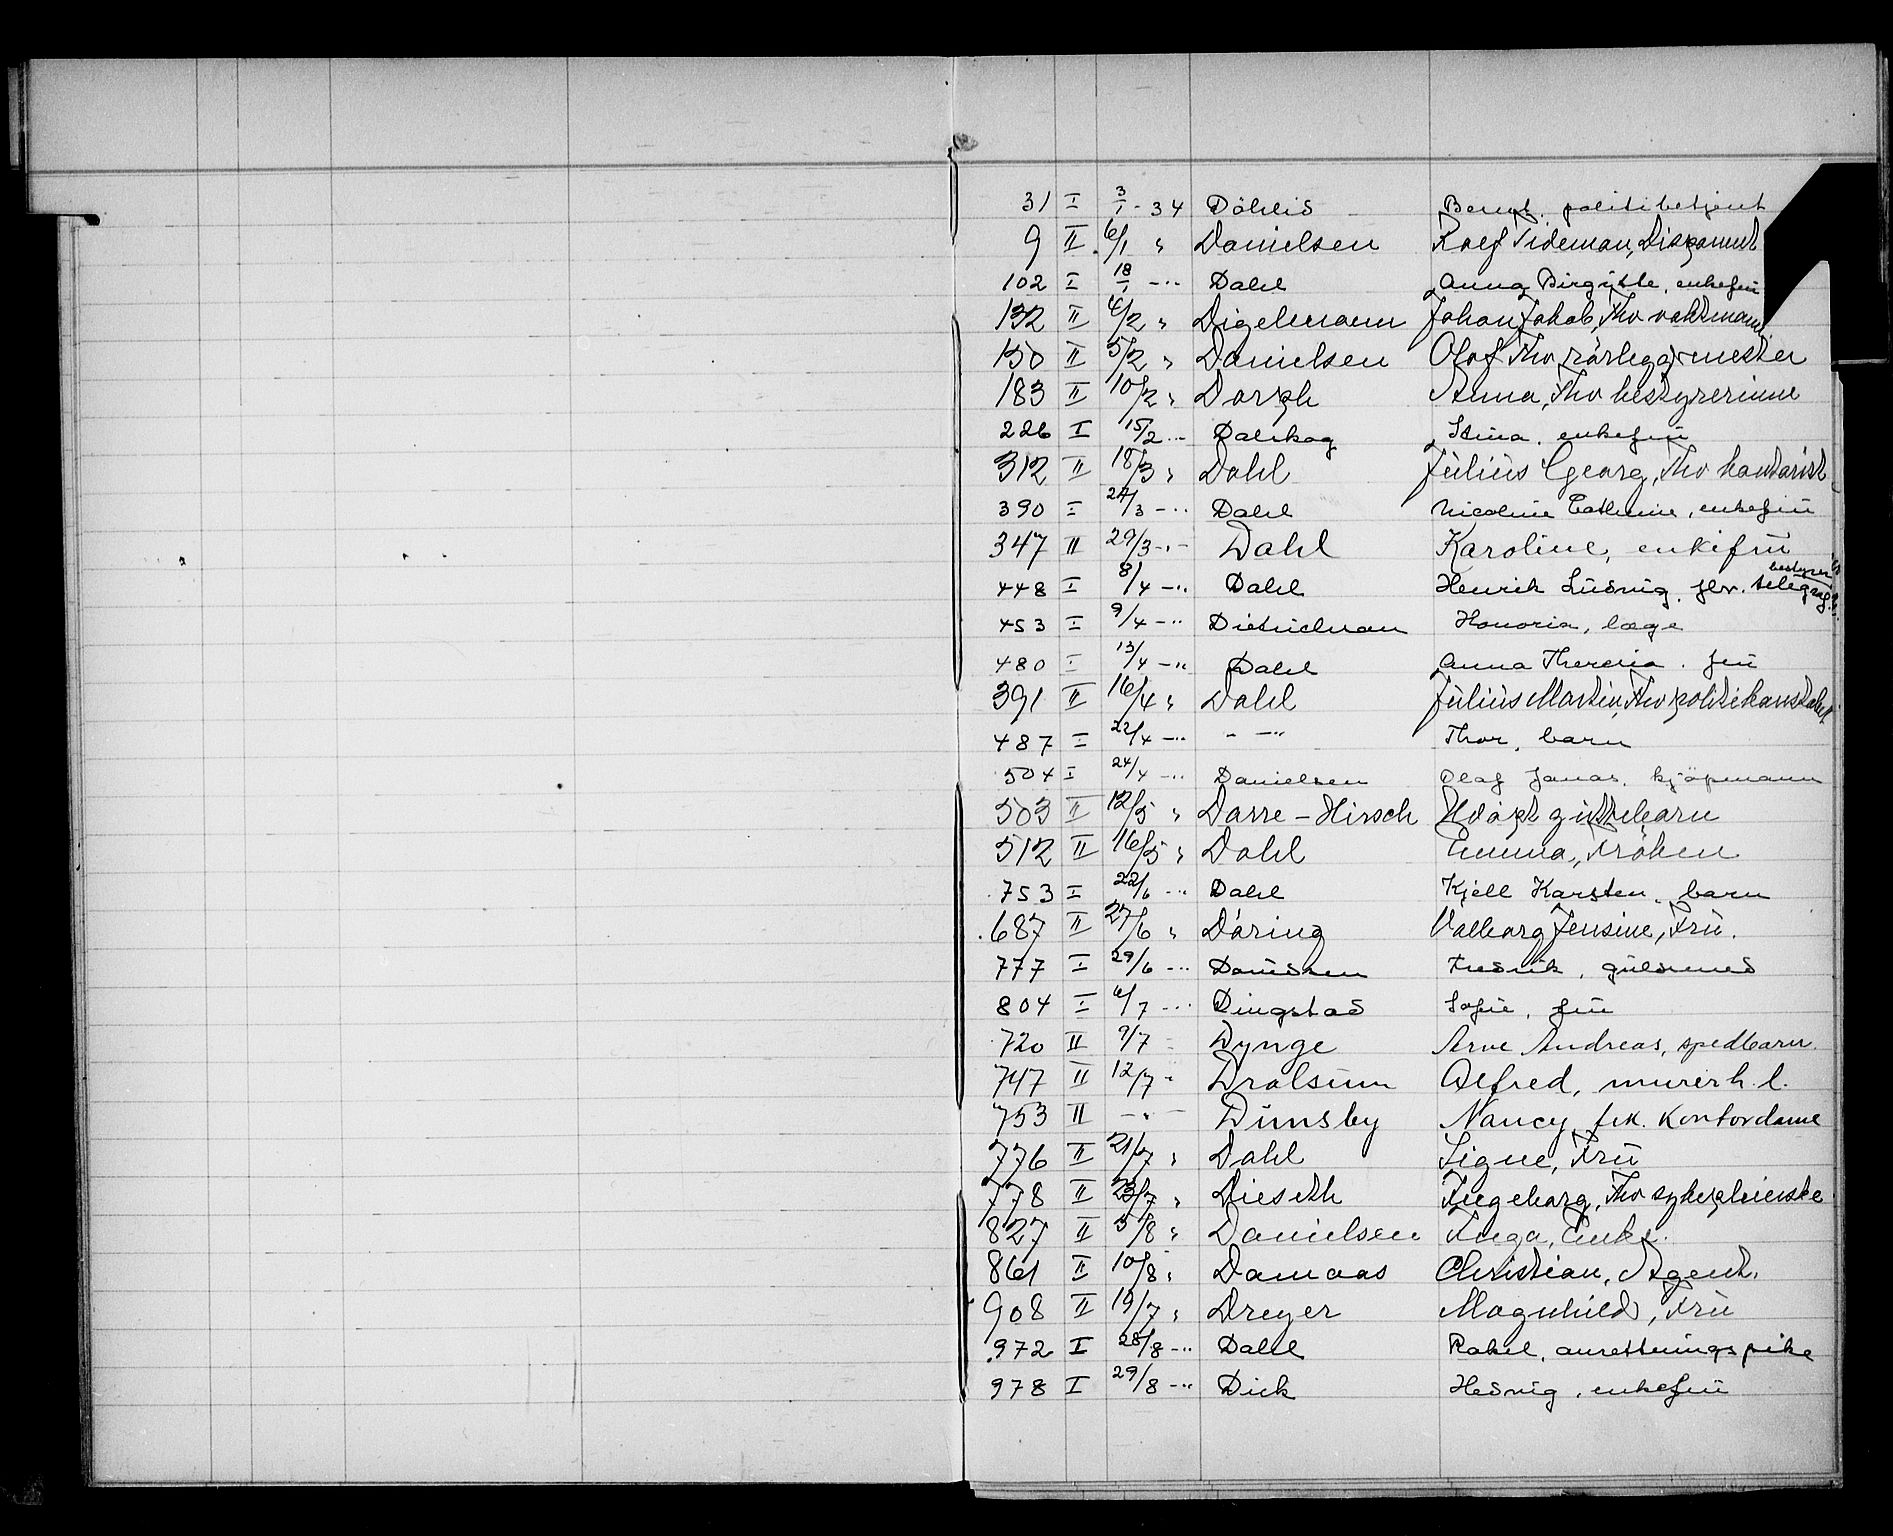 31 I 3/1 - 34 Döhlis Bernt, politibetjent
9 II 6/1 " Danielsen Rolf Tideman, Disponent
102 I 18/1 - " Dahl Anna Birgitte, enkefru
132 II 4/2 " Digelmann Johan Jakob, Fhv vaktmann
150 II 5/2 " Danielsen Olof Fhv rörleggermester
183 II 10/2 " Dorph Anna, Fhv bestyrerinne
226 I 15/2 - " Dalskog Stina, enkefru
312 II 18/3 " Dahl Julius Georg, Fhv kontorist
390 I 24/3 - " Dahl Nicoline Cathrine, enkefru
347 II 29/3 - " - Dahl Karoline, enkefru
448 I 8/4 - " Dahl Henrik Ludvig, fhv. telegraf bestyrer
453 I 9/4 - " Dietrichson Honoria, læge
480 I 13/4 - " Dahl Anna Theresia, fru
391 II 16/4 " Dahl Julius Martin, Fhv politikonstabel
487 I 22/4 - " - - " Thor, barn
504 I 24/4 - " Danielsen Olaf Jonas, kjöpmann
503 II 12/5 " Darre-Hirsch Udöpt guttebarn
512 II 16/5 " Dahl Emma, Fröken
753 I 22/6 - " Dahl Kjell Karsten, barn
687 II 27/6 " Döring Valborg Jensine, Fru.
777 I 29/6 - " Davidsen Fredrik, gulsmed
804 I 6/7 - " Dingstad Sofie, fru
720 II 9/7 - Dynge Arve Andreas, spedbarn.
747 II 12/7 " Drolsum Alfred, murerh.l.
753 II - " - Dimsby Nancy, frk. Kontordame
776 II 21/7 " Dahl Signe, Fru
778 II 23/7 " Dieseth Ingeborg, Fhv sykepleierske
827 II 5/8 " Danielsen Inga, Enke.
861 II 10/8 " Damaas Christian, Agent.
908 II 19/7 " Dreyer Magnhild, Fru
972 I 28/8 - " Dahl Rakel, anretningspike
978 I 29/8 - " Dick Hedvig, enkefru